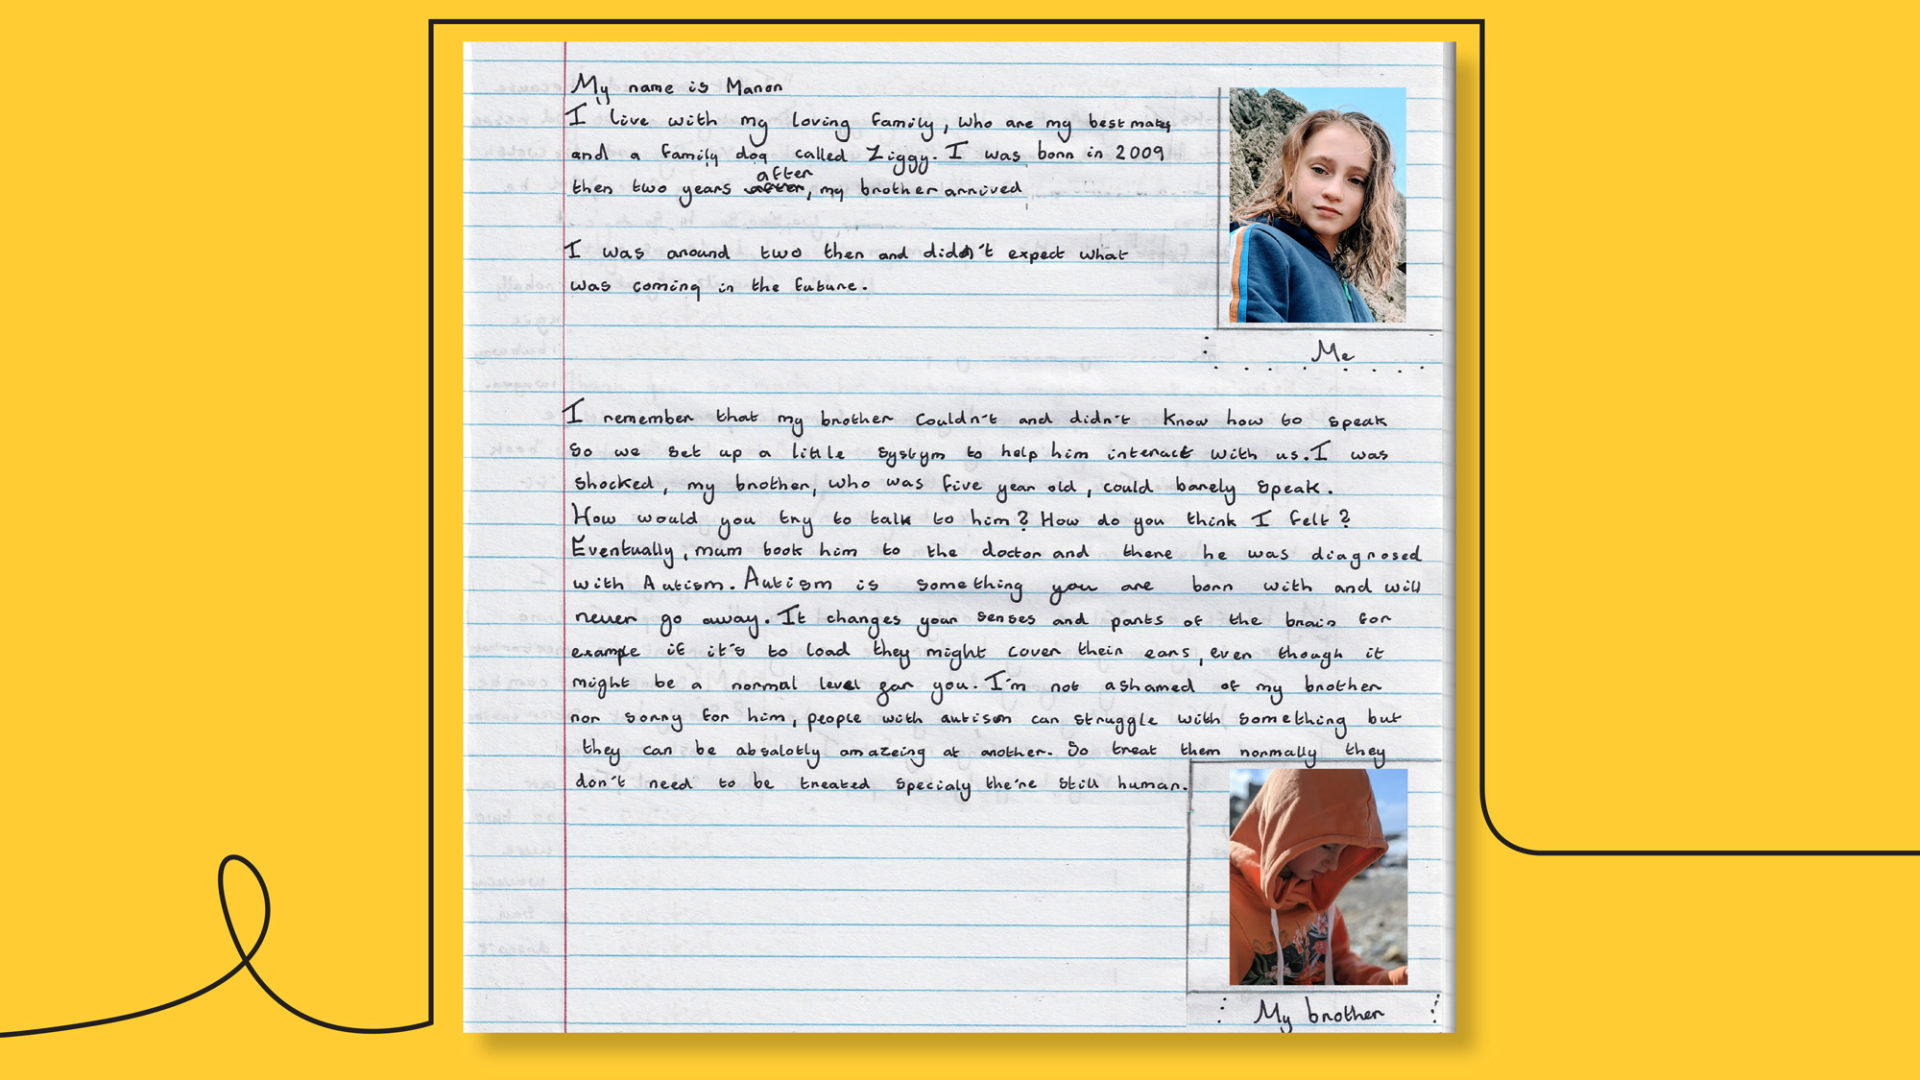 My name is Manon
I live with my loving family, who are my best mates
and a family dog called Ziggy. I was born in 2009
then two years after, my brother arrived
I was around two then and didn't expect what
was coming in the future.
Me
I remember that my brother couldn't and didn't know how to speak
so we set up a little systym to help him interact with us. I was
shocked, my brother, who was five year old, could barely speak.
How would you try to talk to him? How do you think I felt?
Eventually, mum book him to the doctor and there he was diagnosed
with Autism. Autism is something you are born with and will
never go away. It changes your senses and parts of the brain for
example if it's to load they might cover their ears, even though it
might be a normal level for you. I'm not ashamed of my brother
nor sorry for him, people with autism can struggle with something but
they can be absalotly amazeing at another. So treat them normally they
don't need to be treated specialy the're still human.
My brother